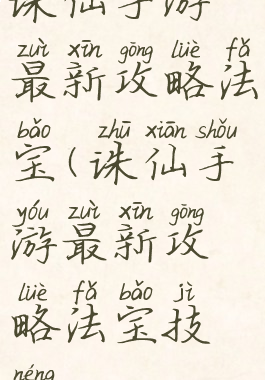 诛仙手游
zuì xīn gōng lüè fǎ
最新攻略法
bǎo zhū xiān shǒu
宝(诛仙手
yóu zuì xīn gōng
游最新攻
lüè fǎ bǎo jì
略法宝技
néng